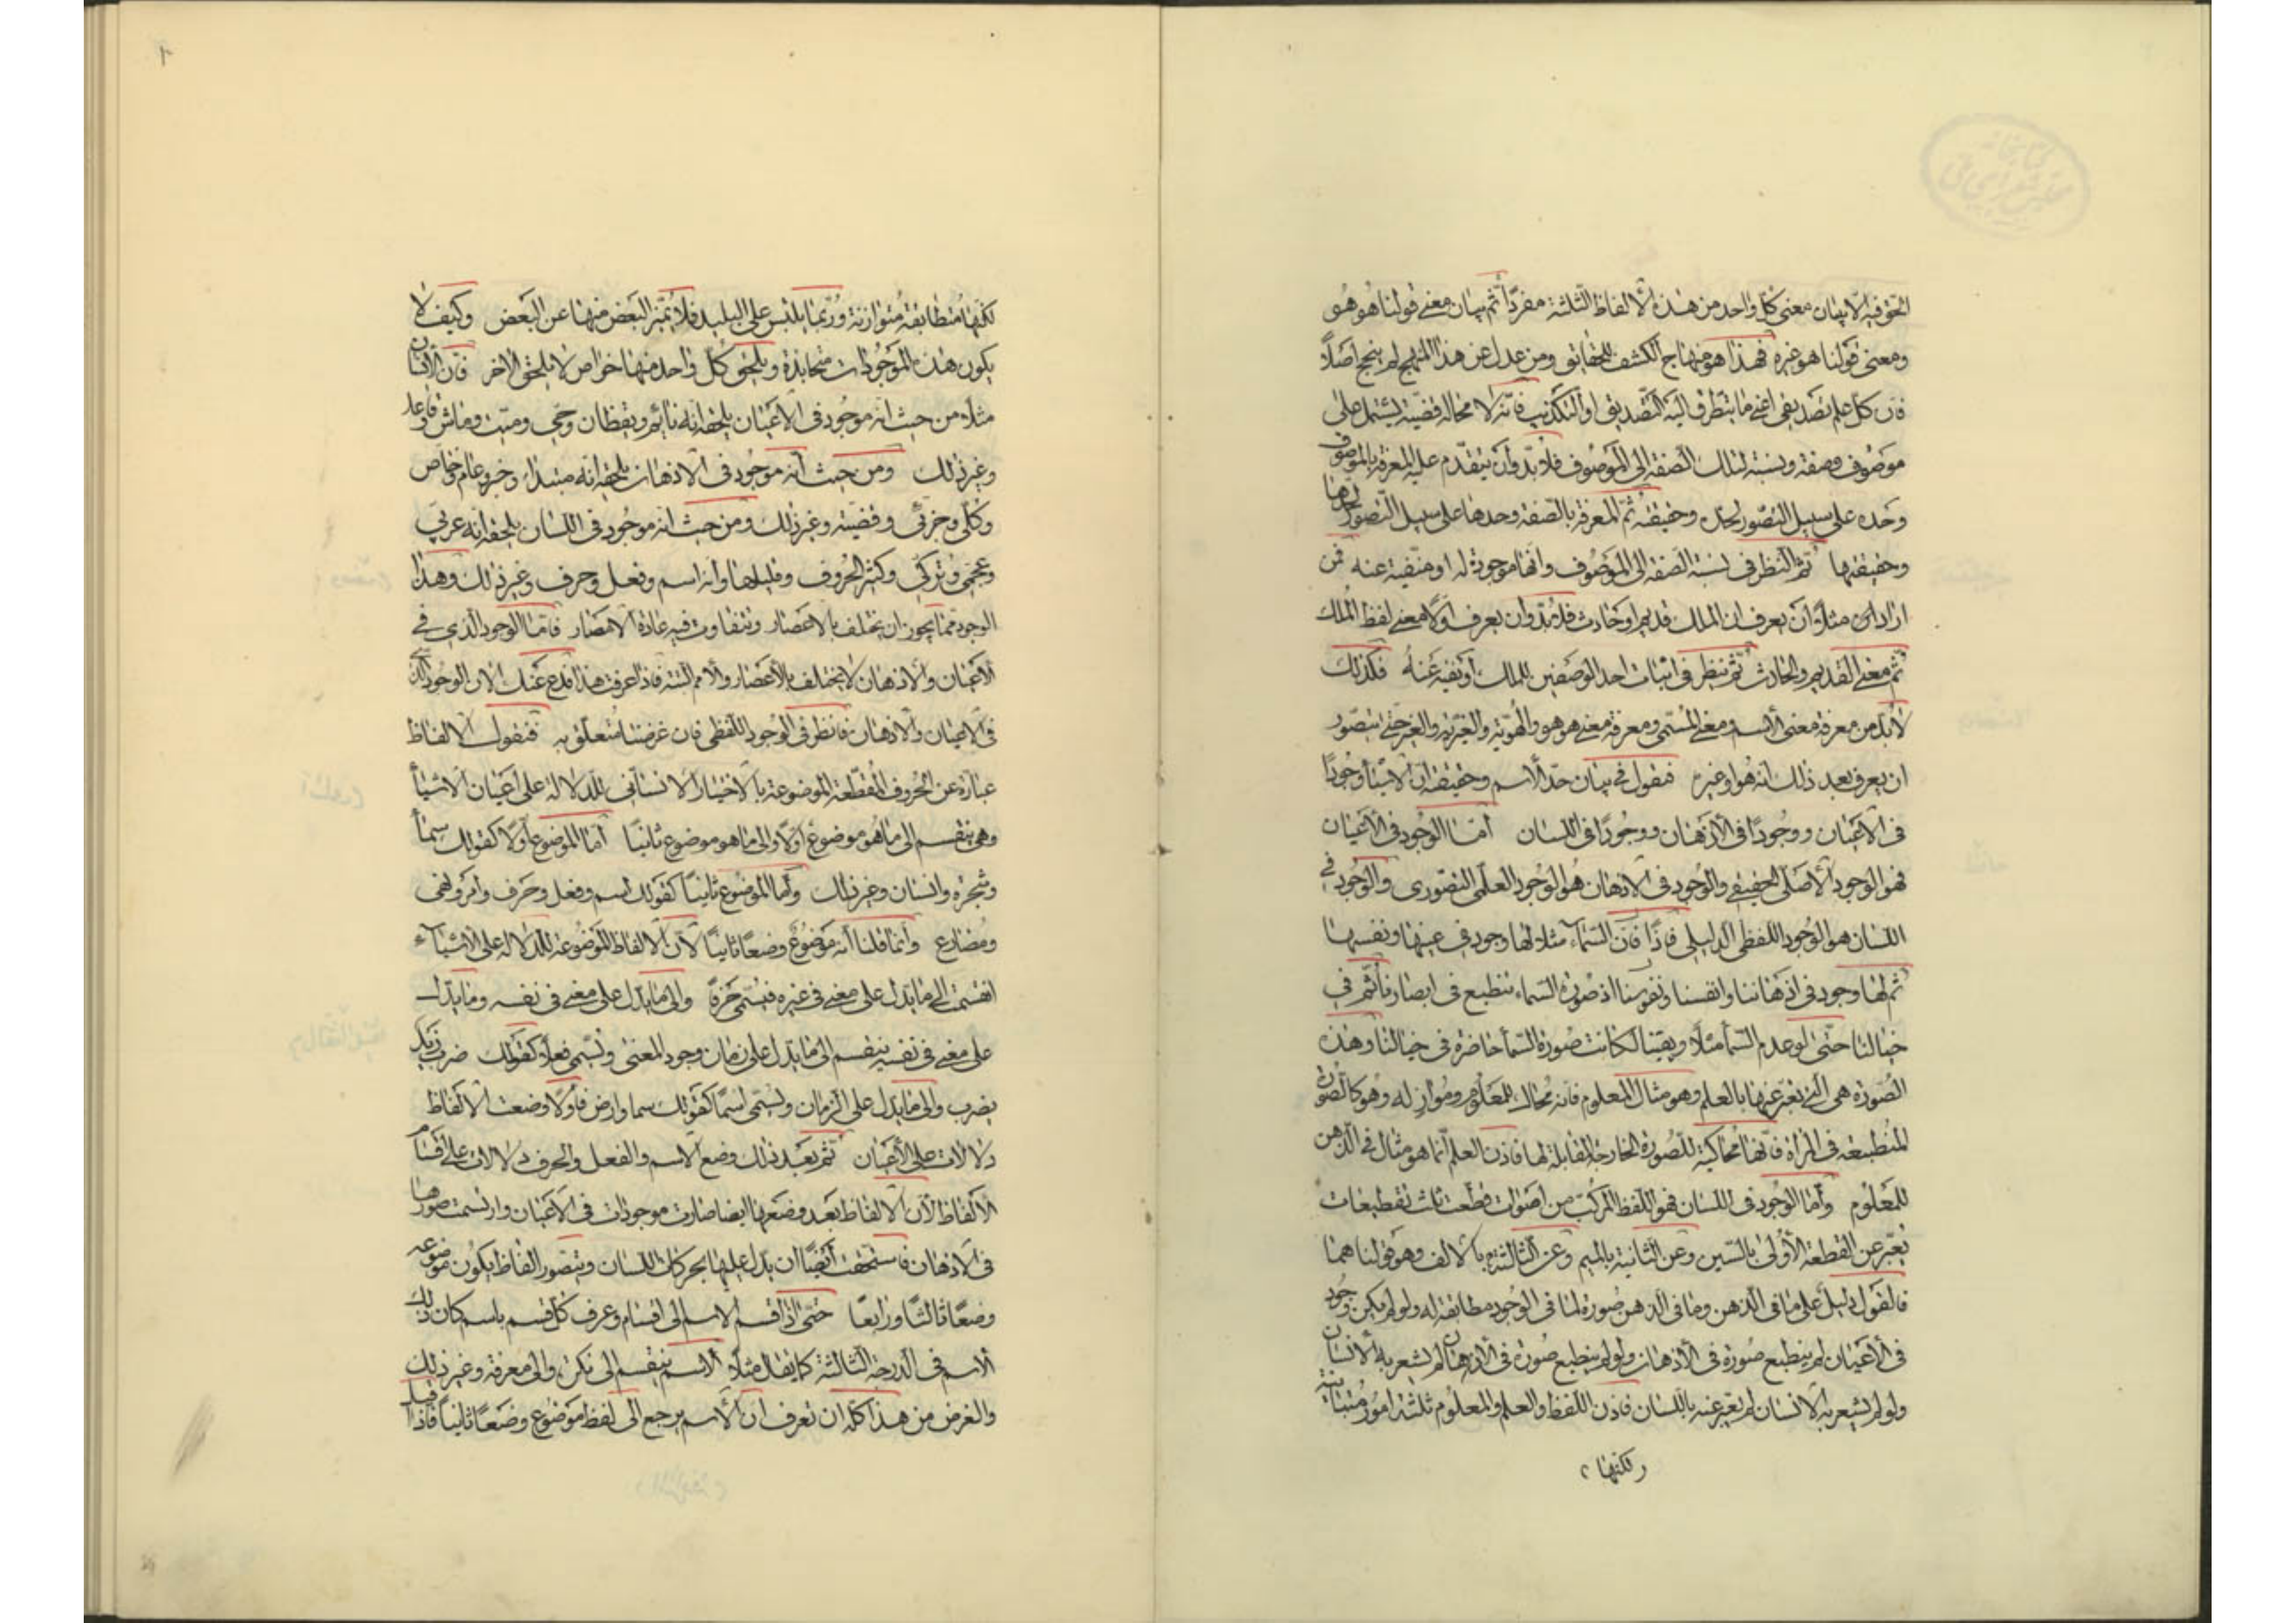 الحق فيه الا ببيان معنى كل واحد من هذه الالفاظ الثلثة مفردا ثم بيان معنى قولنا هو هو
ومعنى قولنا هو غيره فهذا هو منهاج الكشف للحقايق ومن عدل عن هذا المنهج لم ينجح اصلا
فان كل علم تصديقى اعنى ما يتطرق اليه التصديق او التكذيب فانه لا محالة قضية يشتمل على
موصوف وصفة ونسبة لتلك الصفة الى الموصوف فلا بد وان يتقدم عليه المعرفة بالموصوف
وحده على سبيل التصور لحده وحقيقته ثم المعرفة بالصفة وحدها على سبيل التصور لحدها
وحقيقتها ثم النظر فى نسبة الصفة الى الموصوف وانها موجودة له او منفية عنه فمن
اراد مثلا ان يعرف ان الملك قديم او حادث فلا بد وان يعرف اولا معنى لفظ الملك
ثم معنى القديم والحادث ثم ينظر فى اثبات احد الوصفين للملك او نفيه عنه فكذلك
لا بد من معرفة معنى الاسم ومعنى المسمى ومعرفة معنى هو هو والهوية والغيرية والغير حتى يتصور
ان يعرف بعد ذلك انه هو او غيره فنقول فى بيان حد الاسم وحقيقته ان للاشيأ وجودا
فى الاعيان ووجودا فى الاذهان ووجودا فى اللسان أما الوجود فى الاعيان
فهو الوجود الاصلى الحقيقى والوجود فى الاذهان هو الوجود العلمى التصورى والوجود فى
اللسان هو الوجود اللفظى الدليلى فاذا فان السماء مثلا لها وجود فى عينها ونفسها
ثم لها وجود فى اذهاننا وانفسنا ونفوسنا اذ صورة السماء تنطبع فى ابصارنا ثم فى
خيالنا حتى لو عدم السمأ مثلا وبقينا لكانت صورة السمأ حاضرة فى خيالنا وهذه
الصورة هى التى نعبر عنها بالعلم وهو مثال المعلوم فانه محاك للمعلوم وموازٍ له وهو كالصورة
المنطبعة فى المراة فانها محاكية للصورة الخارجة المقابلة لها فاذن العلم انما هو مثال فى الذهن
للمعلوم وأما الوجود فى اللسان فهو اللفظ المركب من اصوات قطعت ثلث تقطيعات
يعبر عن القطعة الاولى بالسين وعن الثانية بالميم وعن الثالثة بالالف وهو قولنا هما
فالقول دليل على ما فى الذهن وما فى الذهن صورة لما فى الوجود مطابقة له ولو لم يكن وجود
فى الاعيان لم ينطبع صورة فى الاذهان ولو لم ينطبع صورة فى الاذهان لم يشعر به الانسان
ولو لم يشعر به الانسان لم يعبر عنه باللسان فاذن اللفظ والعلم والمعلوم ثلثة امور متباينة
لكنها
لكنها متطابقة متوازنة وربما يلتبس على البليد فلا يتميز البعض منها عن البعض وكيف لا
يكون هذه الموجودات متحايزة ويلحق كل واحد منها خواص لا يلحق الاخر فان الانسان
مثلا من حيث انه موجود فى الاعيان يلحقه انه نائم ويقظان وحى وميت وماش وقاعد
وغير ذلك ومن حيث انه موجود فى الاذهان يلحقه انه مبتداء وخبر وعام وخاص
وكلى وجزئى وقضية وغير ذلك ومن حيث انه موجود فى اللسان يلحقه انه عربى
وعجمى وتركى وكثير الحروف وقليلها وانه اسم وفعل وحرف وغير ذلك وهذا
الوجود مما يجوز ان يختلف بالاعصار ويتفاوت فيه عادة الامصار فاما الوجود الذى فى
الاعيان والاذهان لا يختلف بالاعصار والامم البتة فاذا عرفت هذا فدع عنك الان الوجود الذى
فى الاعيان والاذهان فانظر فى الوجود اللفظى فان غرضنا متعلق به فنقول الالفاظ
عبارة عن الحروف المقطعة الموضوعة بالاختيار الانسانى للدلالة على اعيان الاشيأ
وهى ينقسم الى ما هو موضوع اولا والى ما هو موضوع ثانيا أما الموضوع اولا كقولك سمأ
وشجرة وانسان وغير ذلك وأما الموضوع ثانيا كقولك اسم وفعل وحرف وامر ونهى
ومضارع وانما قلنا انه موضوع وضعا ثانيا لأن الالفاظ الموضوعة للدلالة على الاشيآء
انقسمت الى ما يدل على معنى فى غيره فيسمى حرفا والى ما يدل على معنى فى نفسه وما يدل
على معنى فى نفسه ينقسم الى ما يدل على زمان وجود المعنى ويسمى فعلا كقولك ضرب زيد
يضرب والى ما يدل على الزمان ويسمى اسما كقولك سما وارض فاولا وضعت الالفاظ
دلالات على الأعيان ثم بعد ذلك وضع الاسم والفعل والحرف دلالات على اقسام
الالفاظ لأن الالفاظ بعد وضعها ايضا صارت موجودات فى الاعيان وارتسمت صورها
فى الاذهان فاستحقت أيضا ان يدل عليها بحركات اللسان ويتصور الفاظ يكون موضوعة
وضعا ثالثا ورابعا حتى اذا قسم الاسم الى اقسام وعرف كل قسم باسم كان ذلك
الاسم فى الدرجة الثالثة كما يقال مثلا الاسم ينقسم الى نكرة والى معرفة وغير ذلك
والغرض من هذا كله ان تعرف ان الاسم يرجع الى لفظ موضوع وضعا ثانيا فاذا قيل